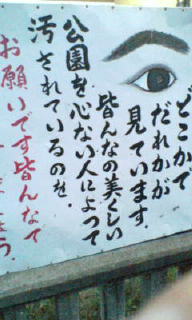 どこかで
だれかが
見ています。
皆んなの美くしい
公園を心ない人によって
汚されているのを。
お願いです皆んなで